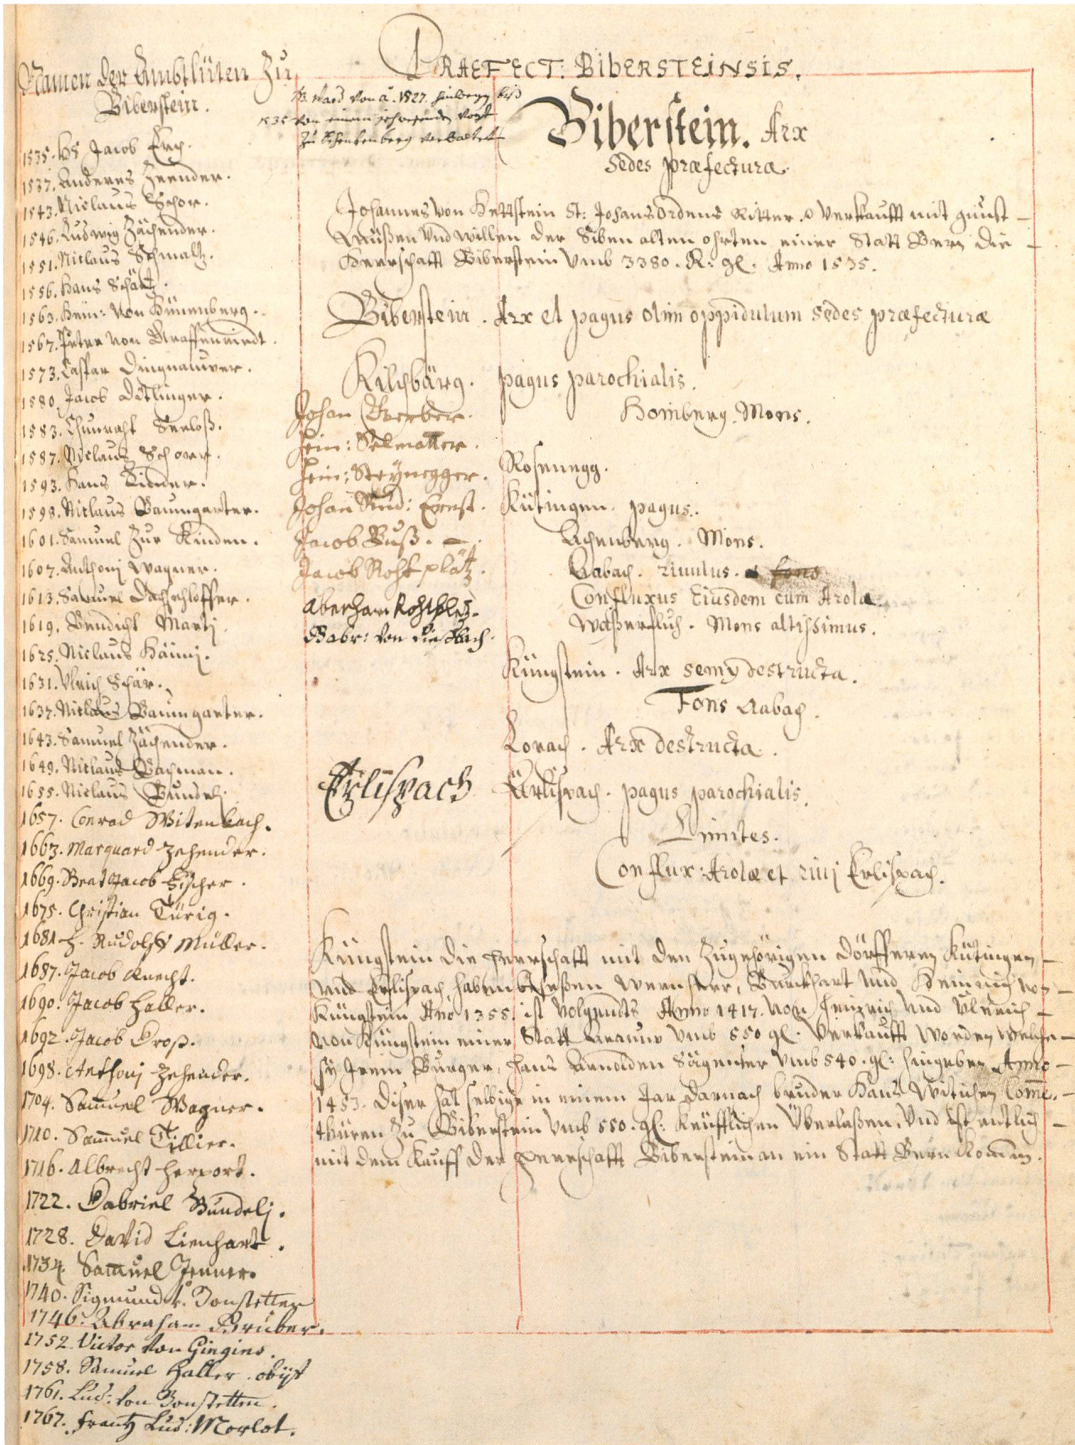 PRAEFECT: BIBERSTEINSIS.
Namen der Ambtlüten Zu
Biberstein.
1535. Hs Jacob
1537. Anderes Zeender.
1543. Niclaus Schor.
1546. Ludwig Zächender.
1551. Niclaus Schmaltz.
1556. Hans Schütz.
1563. Hein: von Hünenberg.
1567. Peter von Graffenriedt.
1573. Caspar Dingnauwer.
1580. Jacob Ditlinger.
1583. Chunradt Seeloß.
1587. Niclaus Schorr.
1593. Hans Kinder.
1598. Niclaus Baumgarter.
1601. Samuel Zur Kinden.
1607. Anthoni Wagner.
1613. Samuel Dachselhoffer.
1619. Bendicht Martj
1625. Niclaus
1631. Ulrich Schär.
1637. Niclaus Baumgarter.
1643. Samuel Zächender.
1649. Niclaus Bachman.
1655. Niclaus Bundelj
1657. Conrad Witenbach.
1663. Marquard Zehender.
1669. Beat Jacob Fischer.
1675. Christian Türig.
1681. H. Rudolff Muller.
1687. Jacob Knecht.
1690. Jacob Haller.
1692. Jacob Groß.
1698. Anthonj Zehender.
1704. Samuel Wagner.
1710. Samuel Tillier.
1716. Albrecht Herport.
1722. Gabriel Gundelj.
1728. David Lienhart.
1734. Samuel Jenner.
1740. Sigmund v. Bonstetten
1746. Abraham Gruber.
1752. Victor von Gingins.
1758. Samuel Haller. obijt
1761. Lud: von Bonstetten.
1767. Frantz Lud: Morlot.
Ward von A. 1527. hinweg biß
1535 von einem Vogt
Zu Schenkenberg verwaltet
Biberstein. Arx
Sedes præfectura.
Johannes von Hettstein St: Johans Ordens Ritter verkaufft mit gunst
und willen der Siben alten ohrten einer Statt Bern die
Heerschafft Biberstein umb 3380. R: gl. Anno 1535.
Biberstein. Arx et pagus olim oppidulum sedes præfecturæ
Kilchbärg. pagus parochialis.
Johan Gerber. Homberg. Mons.
Hein: Selmatter.
Hein: Steinegger. Rosenegg.
Johan Rud: Ernst. Kütingen. pagus.
Jacob Buß. Achenberg. Mons.
Jacob Rohtpläz. Aabach. riuulus. fons
Aberham Rohtpletz. Confluxus Eiusdem cum Arola.
Gabr: von Dießbach. Waßerfluh. Mons altissimus.
Küngstein. Arx semy destructa.
Fons Aabach.
Lorach. Arx destructa.
Erlispach Ärlispach. pagus parochialis.
Limites.
Conflux: Arolæ et riuj Erlispach.
Küngstein die Heerschafft mit den Zugehörigen Dörfferen Kütingen
und Erlispach, haben beseßen Wernher, Burckhart und Heinrich von
Küngstein Ano 1355. ist volgendts Anno 1417. von Heinrich und Ulrich
von Küngstein einer Statt Arauw umb 550 gl. verkaufft worden welche
sy Irem Burger, Hans Arnolden Sägenser umb 540. gl: hingeben Anno
1453. Diser hat selbige in einem Jar darnach bruder Hans Wittichen Com̄en-
thüren Zu Biberstein umb 550. gl: Keüfflichen Überlaßen, und ist entlich
mit dem Kauff der Heerschafft Biberstein an ein Statt Bern komen.